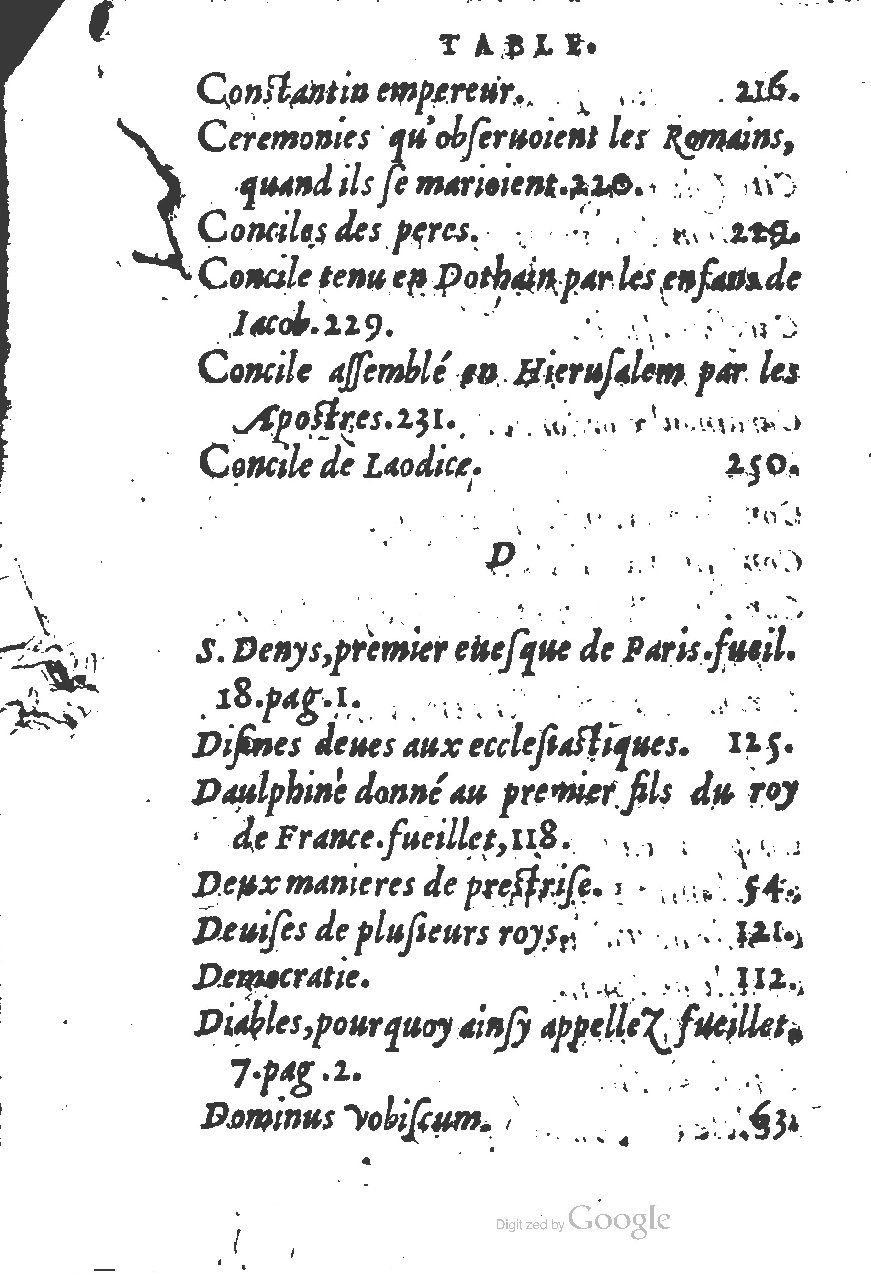 TABLE.
Constantin empereur. 216.
Ceremonies qu'obſeruoient les Romains,
quand ils ſe marioient.220.
Conciles des peres. 229.
Concile tenu en Dothain par les enfans de
Iacob.229.
Concile aſſemblé en Hieruſalem par les
Apostres.231.
Concile de Laodice. 250.
D
S. Denys, premier eueſque de Paris.fueil.
18.pag.1.
Diſmes deues aux eccleſiastiques. 125.
Daulphiné donné au premier fils du roy
de France.fueillet,118.
Deux manieres de prestriſe. 54.
Deuiſes de pluſieurs roys. 121.
Democratie. 112.
Diables, pourquoy ainſy appellez fueillet.
7.pag.2.
Dominus vobiſcum. 63.
Digitized by Google